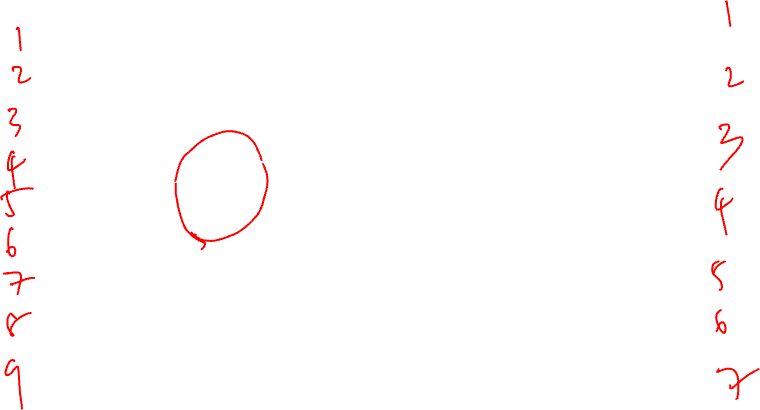 1
2
3
4
5
6
7
8
9
1
2
3
4
5
6
7